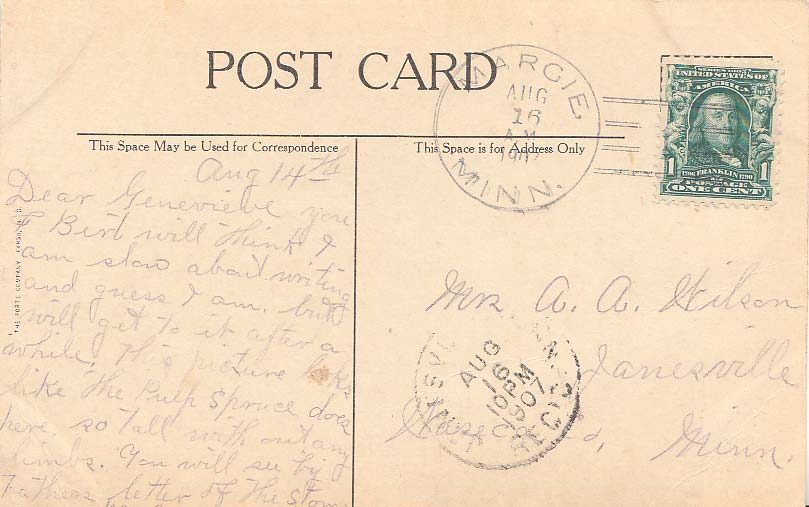 POST CARD
This Space May be Used for Correspondence
This Space is for Address Only
MARGIE, MINN.
AUG
16
A.M.
1907
SERIES 1902
UNITED STATES OF
AMERICA
1706 FRANKLIN 1790
POSTAGE
1 ONE CENT 1
THE PORTE COMPANY, FARGO, N. D.
Aug 14th
Dear Genevieve you
& Birt will think I
am slow about writing
and guess I am. but
will get to it after a
while This picture looks
like the Pulp Spruce does
here so tall with out any
limbs. You will see by
Fathers letter of the storm
Mrs A. A. Wilson
Janesville
Waseca Co, Minn.
AUG
16
10 PM
1907
REC'D